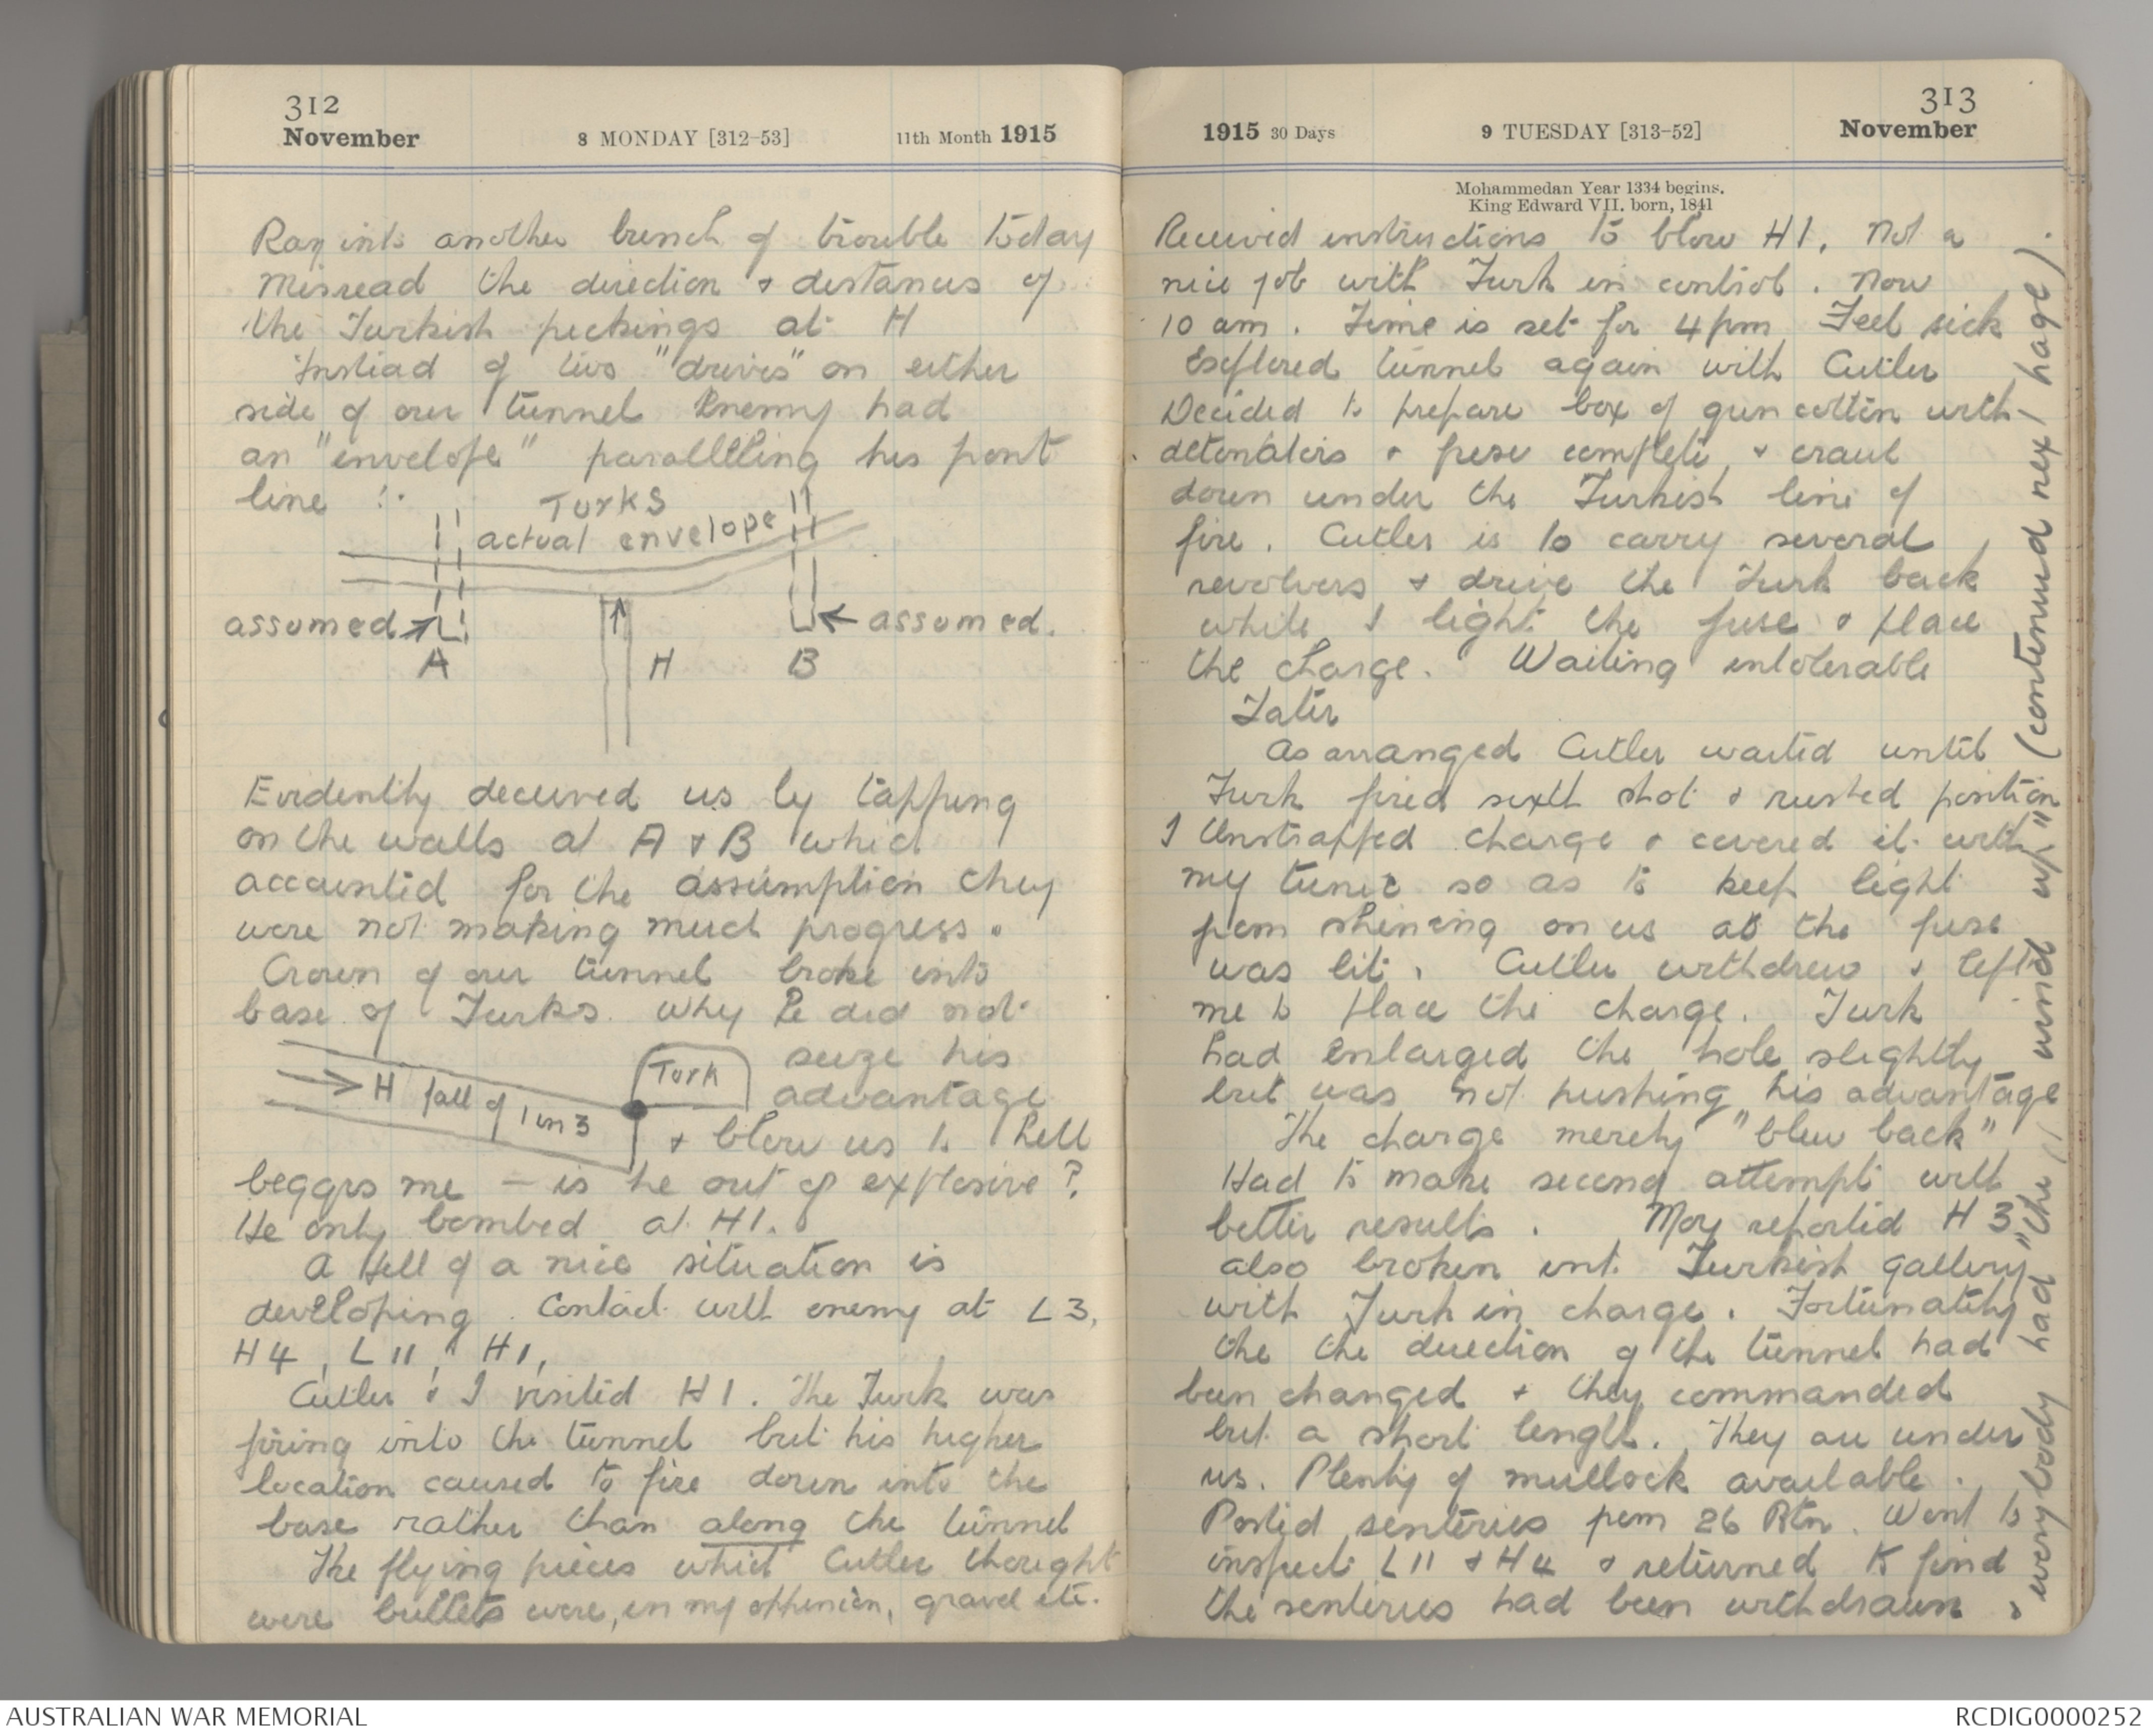 312
November
8 MONDAY [312-53]
11th Month 1915
Ran into another bunch of trouble today
Misread the direction & distances of
the Turkish peckings at H
Instead of two "drives" on either
side of our tunnel Enemy had
an "envelope" paralleling his front
line !.
Turks
actual envelope
assumed
assumed.
A
H
B
Evidently deceived us by tapping
on the walls at A & B which
accounted for the assumption they
were not making much progress.
Crown of our tunnel broke into
base of Turks. Why he did not
seize his
Turk
H fall of 1 in 3
advantage
& blow us to hell
beggars me – is he out of explosive?.
He only bombed at H1.
A Hell of a nice situation is
developing. Contact with enemy at L3,
H4, L11, H1,
Cutler & I visited H1. The Turk was
firing into the tunnel but his higher
location caused to fire down into the
base rather than along the tunnel
The flying pieces which Cutler thought
were bullets were, in my oppinion, gravel etc.
313
1915 30 Days
9 TUESDAY [313-52]
November
Mohammedan Year 1334 begins.
King Edward VII. born, 1841
Received instructions to blow H1. Not a
nice job with Turk in control. Now
10 am. Time is set for 4 pm Feel sick
Explored tunnel again with Cutler
Decided to prepare box of gun cotton with
detonators & fuse complete, & crawl
down under the Turkish line of
fire. Cutler is to carry several
revolvers & drive the Turk back
while I light the fuse & place
the charge. Waiting intolerable
Later
As arranged Cutler waited until
Turk fired sixth shot & rushed position
I Unstrapped charge & covered it with
my tunic so as to keep light
from shining on us as the fuse
was lit. Cutler withdrew & left
me to place the charge. Turk
had enlarged the hole slightly
but was not pushing his advantage
The charge merely "blew back"
Had to make second attempt with
better results. Moy reported H3
also broken into Turkish gallery
with Turk in charge. Fortunately
the the direction of the tunnel had
been changed & they commanded
but a short length. They are under
us. Plenty of mullock available.
Posted sentries from 26 Btn. Went to
inspect L11 & H4 & returned to find
the sentries had been withdrawn &
everybody had "the wind up" (continued next page).
AUSTRALIAN WAR MEMORIAL
RCDIG0000252